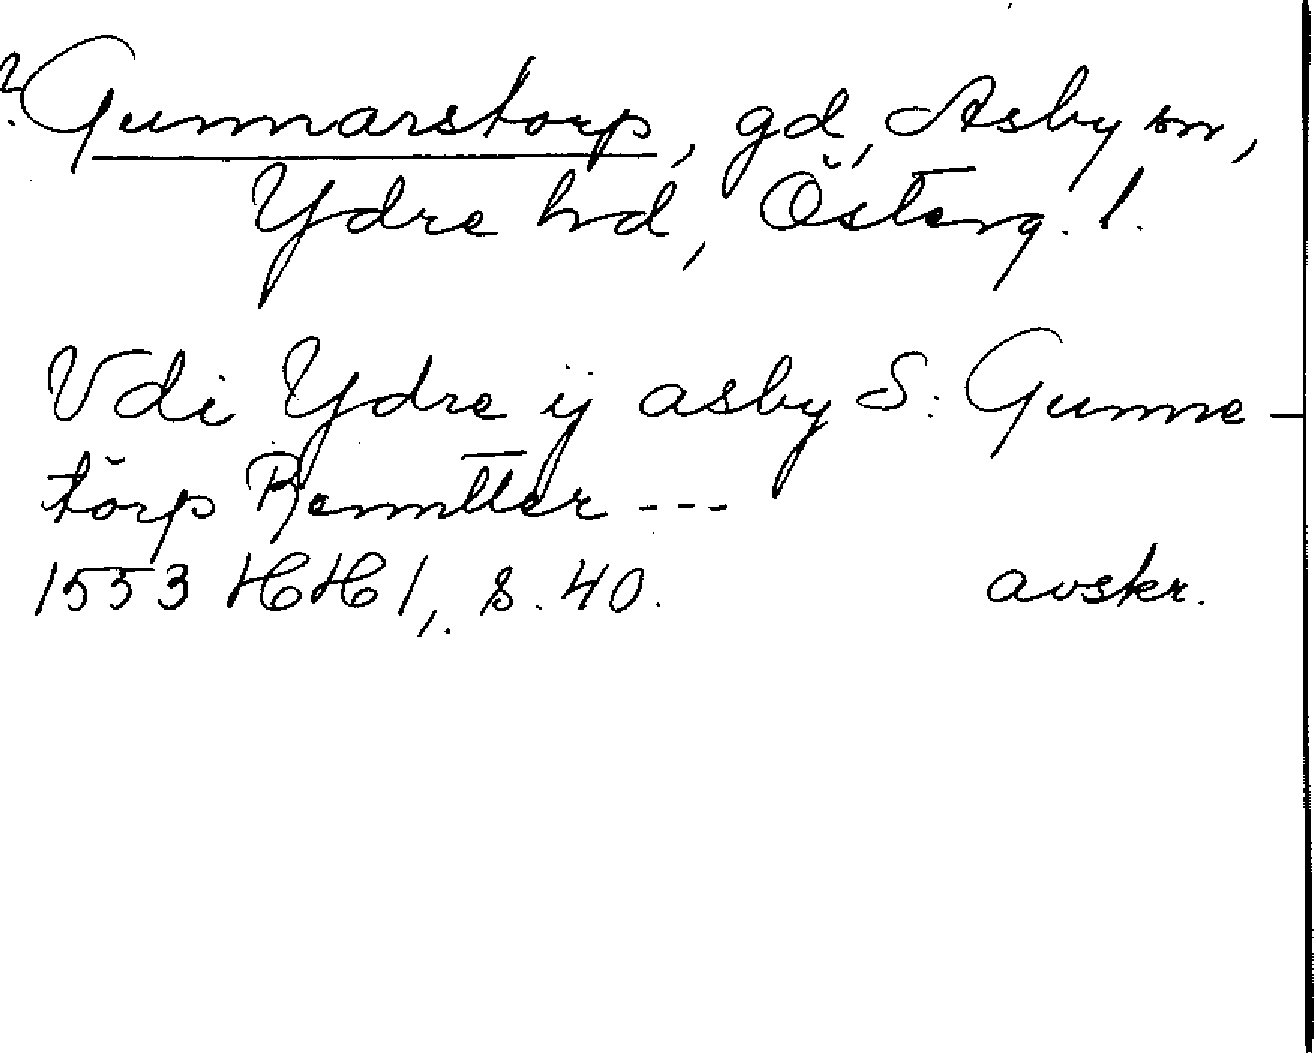 ? Gunnarstorp, gd, Asby sn,
Ydre hd, Österg. l.
Vdi Ydre ij asby S: Gunne-
torp Renntter ---
1553 HH 1, s. 40. avskr.